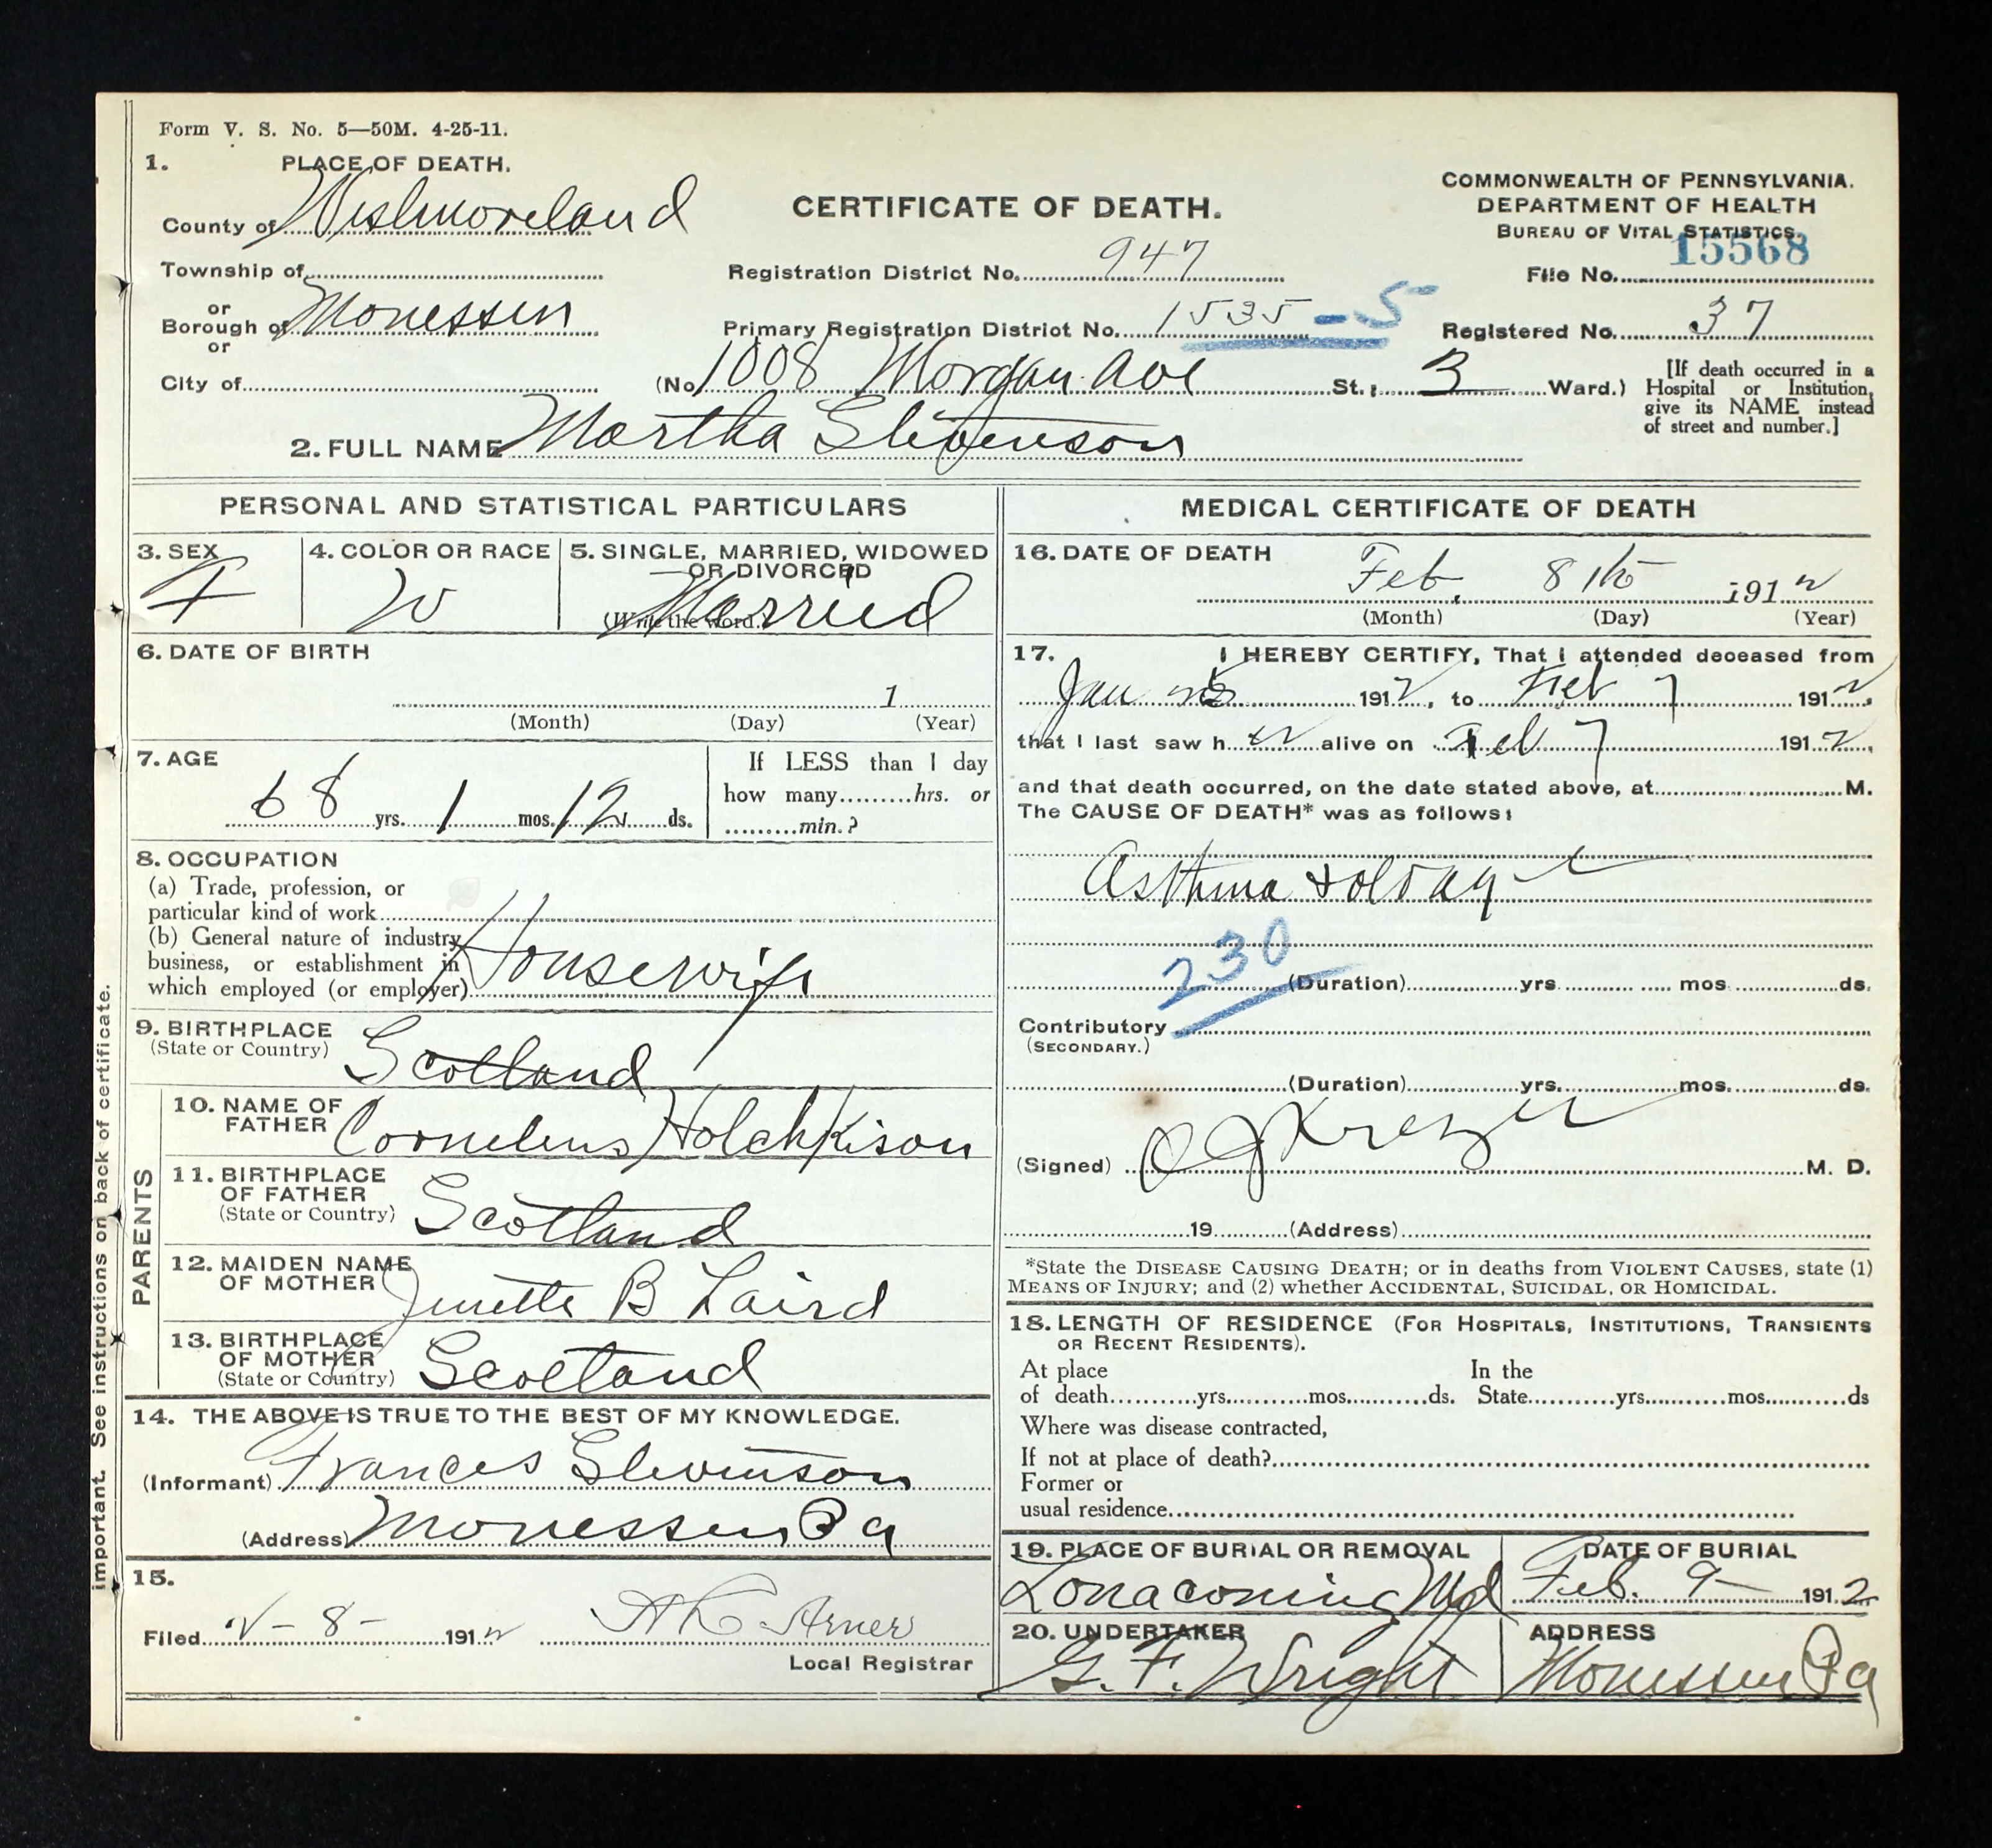 Form V. S. No. 5—50M. 4-25-11.
1. PLACE OF DEATH.
County of Westmoreland
CERTIFICATE OF DEATH.
COMMONWEALTH OF PENNSYLVANIA.
DEPARTMENT OF HEALTH
BUREAU OF VITAL STATISTICS.
Township of
Registration District No. 947
File No. 15568
or
Borough of Monessen
Primary Registration District No. 1535 - 5
Registered No. 37
or
City of
(No 1008 Morgan Ave St.; 3 Ward.)
[If death occurred in a
Hospital or Institution,
give its NAME instead
of street and number.]
2. FULL NAME Martha Stevenson
PERSONAL AND STATISTICAL PARTICULARS
3. SEX
F
4. COLOR OR RACE
W
5. SINGLE, MARRIED, WIDOWED
OR DIVORCED
(Write the word.)
Married
6. DATE OF BIRTH
1
(Month) (Day) (Year)
7. AGE
68 yrs. 1 mos. 12 ds.
If LESS than 1 day
how many.........hrs. or
.........min.?
8. OCCUPATION
(a) Trade, profession, or
particular kind of work
(b) General nature of industry,
business, or establishment in
which employed (or employer)
Housewife
9. BIRTHPLACE
(State or Country)
Scotland
PARENTS
10. NAME OF
FATHER
Cornelius Hotchkison
11. BIRTHPLACE
OF FATHER
(State or Country)
Scotland
12. MAIDEN NAME
OF MOTHER
Jenette B Laird
13. BIRTHPLACE
OF MOTHER
(State or Country)
Scotland
14. THE ABOVE IS TRUE TO THE BEST OF MY KNOWLEDGE.
(Informant) Frances Stevenson
(Address) Monessen Pa
15.
Filed 2-8- 1912
Arner
Local Registrar
MEDICAL CERTIFICATE OF DEATH
16. DATE OF DEATH
Feb. 8th 1912
(Month) (Day) (Year)
17. I HEREBY CERTIFY, That I attended deceased from
Jan 1912, to Feb 7 1912,
that I last saw her alive on Feb 7 1912,
and that death occurred, on the date stated above, at M.
The CAUSE OF DEATH* was as follows:
Asthma & old age
230
(Duration) yrs mos ds.
Contributory
(SECONDARY.)
(Duration) yrs. mos. ds.
(Signed) M. D.
19 (Address)
*State the DISEASE CAUSING DEATH; or in deaths from VIOLENT CAUSES, state (1)
MEANS OF INJURY; and (2) whether ACCIDENTAL, SUICIDAL, OR HOMICIDAL.
18. LENGTH OF RESIDENCE (FOR HOSPITALS, INSTITUTIONS, TRANSIENTS
OR RECENT RESIDENTS).
At place In the
of death yrs. mos. ds. State yrs. mos. ds
Where was disease contracted,
If not at place of death?
Former or
usual residence
19. PLACE OF BURIAL OR REMOVAL
Lonaconing Md
DATE OF BURIAL
Feb. 9 1912
20. UNDERTAKER
G. F. Wright
ADDRESS
Monessen Pa
important. See instructions on back of certificate.